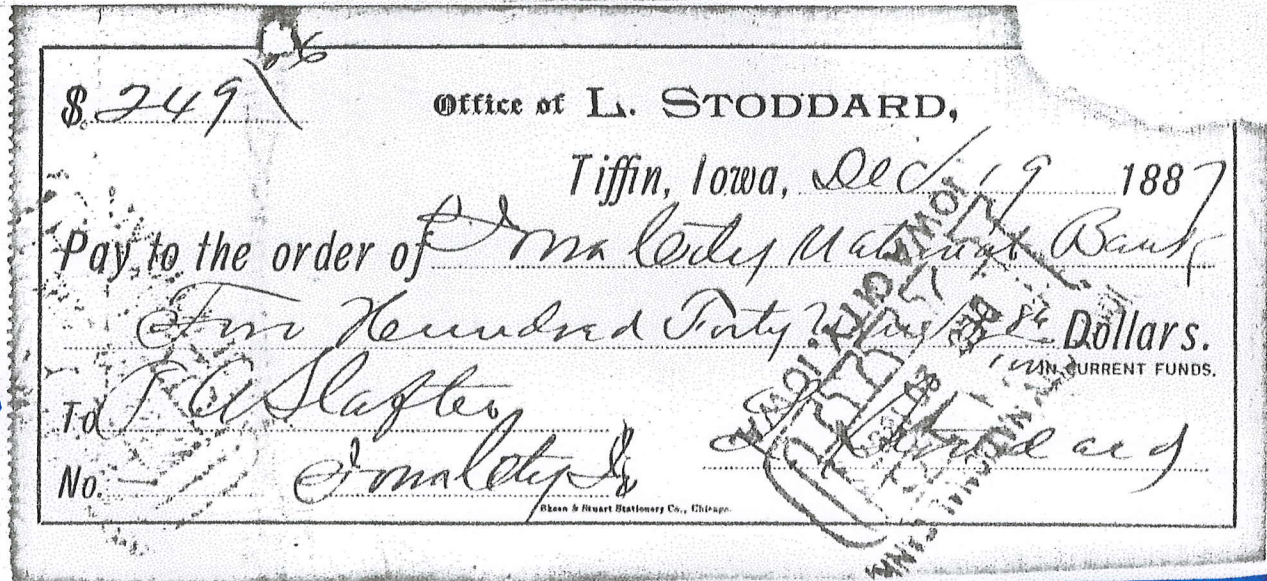 $ 249 86
Office of L. STODDARD,
Tiffin, Iowa, Dec 19 1887
Pay to the order of Iowa City National Bank
Two Hundred Forty Nine 86 Dollars.
IN CURRENT FUNDS.
To Slafter
No. Iowa City Ia
L Stoddard
Skeen & Stuart Stationery Co., Chicago.
IOWA CITY, IOWA
DEC
PAID
NATIONAL BANK